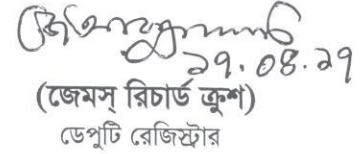 ২৭.০৪.২৭
(জেমস্ রিচার্ড ক্রুশ)
ডেপুটি রেজিস্ট্রার